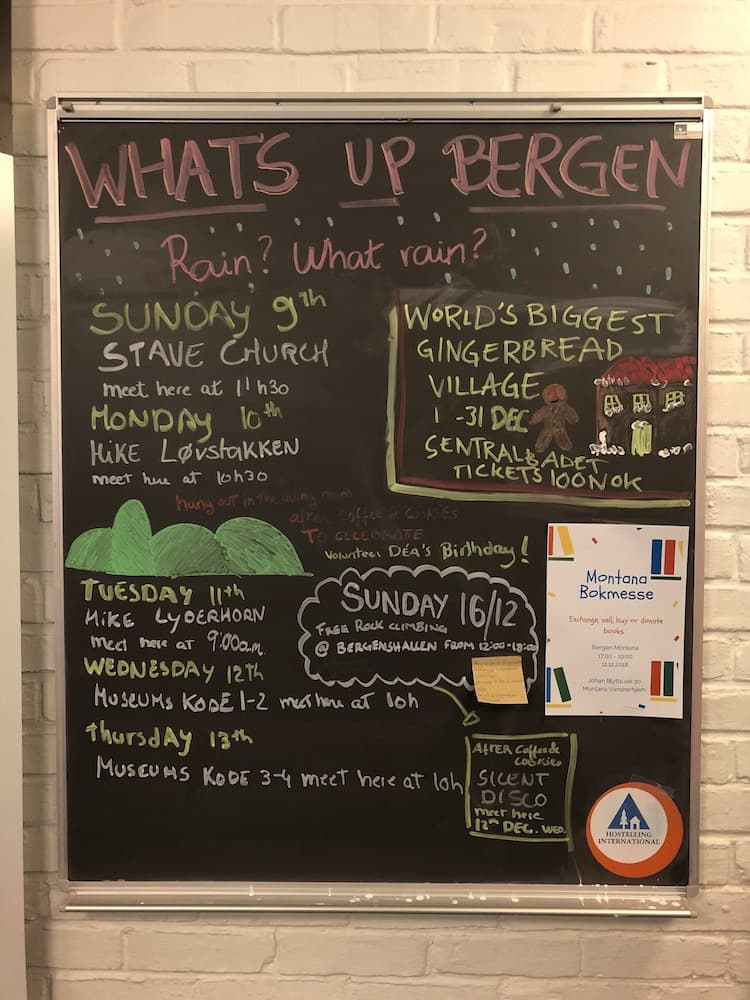 WHAT'S UP BERGEN
Rain? What rain?
SUNDAY 9th
STAVE CHURCH
meet here at 11h30
MONDAY 10th
HIKE LØVSTAKKEN
meet here at 10h30
hang out in the living room
after coffee & cookies
TO CELEBRATE
Volunteer DÉA'S Birthday!
WORLD'S BIGGEST
GINGERBREAD
VILLAGE
1 -31 DEC
SENTRALBADET
TICKETS 100NOK
TUESDAY 11th
HIKE LYDERHORN
meet here at 9:00a.m.
WEDNESDAY 12th
MUSEUMS KODE 1-2 meet here at 10h
thursdAY 13th
MUSEUMS KODE 3-4 meet here at 10h
SUNDAY 16/12
FREE ROCK CLIMBING
@ BERGENSHALLEN FROM 12:00-18:00
AFTER coffee &
COOKIES
SILENT
DISCO
meet here
12th DEC. WED.
Montana
Bokmesse
Exchange, sell, buy or donate
books
Bergen Montana
17:00 - 19:00
11.12.2018
Johan Blytts vei 30
Montana Vandrerhjem
HOSTELLING
INTERNATIONAL